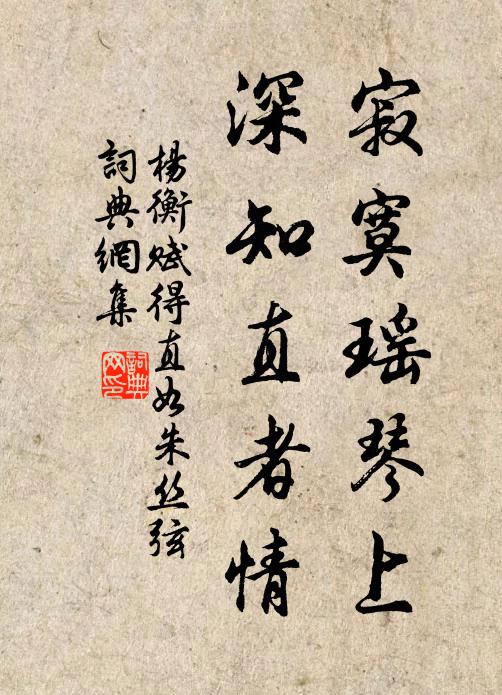 寂寞瑶琴上
深知直者情
楊衡賦得直如朱丝弦
詞典網集
詞典
网印